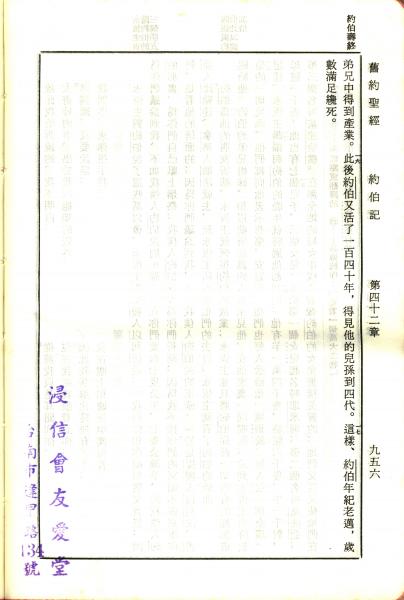 舊約聖經 約伯記 第四十二章 九五六
約伯壽終
弟兄中得到產業。一六此後約伯又活了一百四十年，得見他的兒孫到四代。一七這樣、約伯年紀老邁，歲
數滿足纔死。
浸信會友愛堂
台南市逢甲路134號